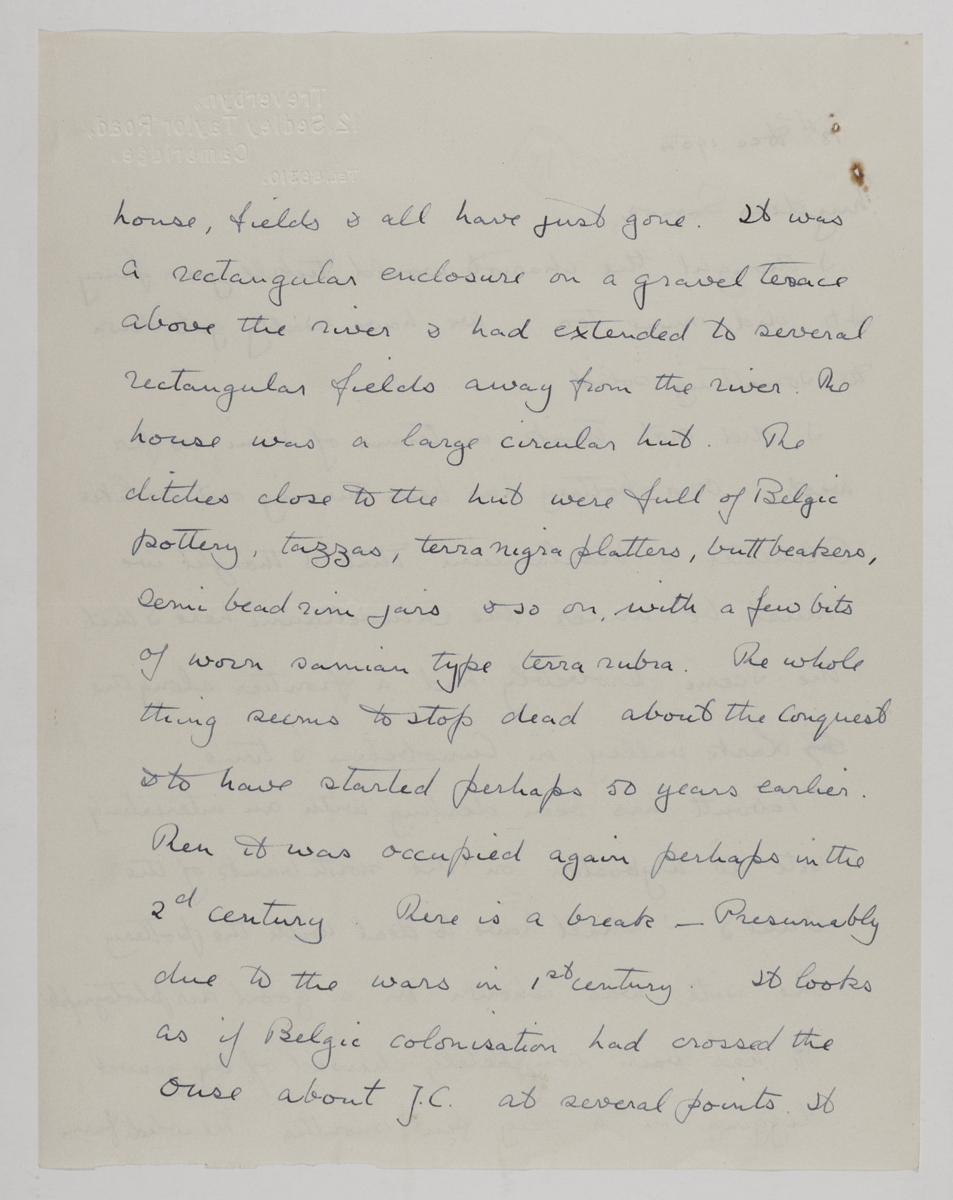 Treverbyn,
12, Sedley Taylor Road,
Cambridge.
house, fields & all have just gone. It was
a rectangular enclosure on a gravel terrace
above the river & had extended to several
rectangular fields away from the river. The
house was a large circular hut. The
ditches close to the hut were full of Belgic
pottery, tazzas, terra nigra platters, butt beakers,
semi bead rim jars & so on, with a few bits
of worn samian type terra rubra. The whole
thing seems to stop dead about the Conquest
& to have started perhaps 50 years earlier.
Then it was occupied again perhaps in the
2d century. There is a break — Presumably
due to the wars in 1st century. It looks
as if Belgic colonisation had crossed the
Ouse about J.C. at several points. It